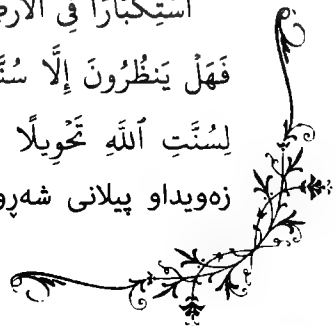 ٱسۡتِكۡبَارٗا فِي ٱلۡأَرۡضِ
فَهَلۡ يَنظُرُونَ إِلَّا سُنَّ
لِسُنَّتِ ٱللَّهِ تَحۡوِيلًا
زەویداو پیلانی شەڕو